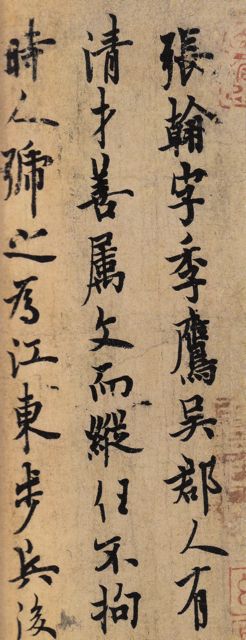 張翰字季鷹吳郡人有
清才善屬文而縱任不拘
時人號之為江東步兵後